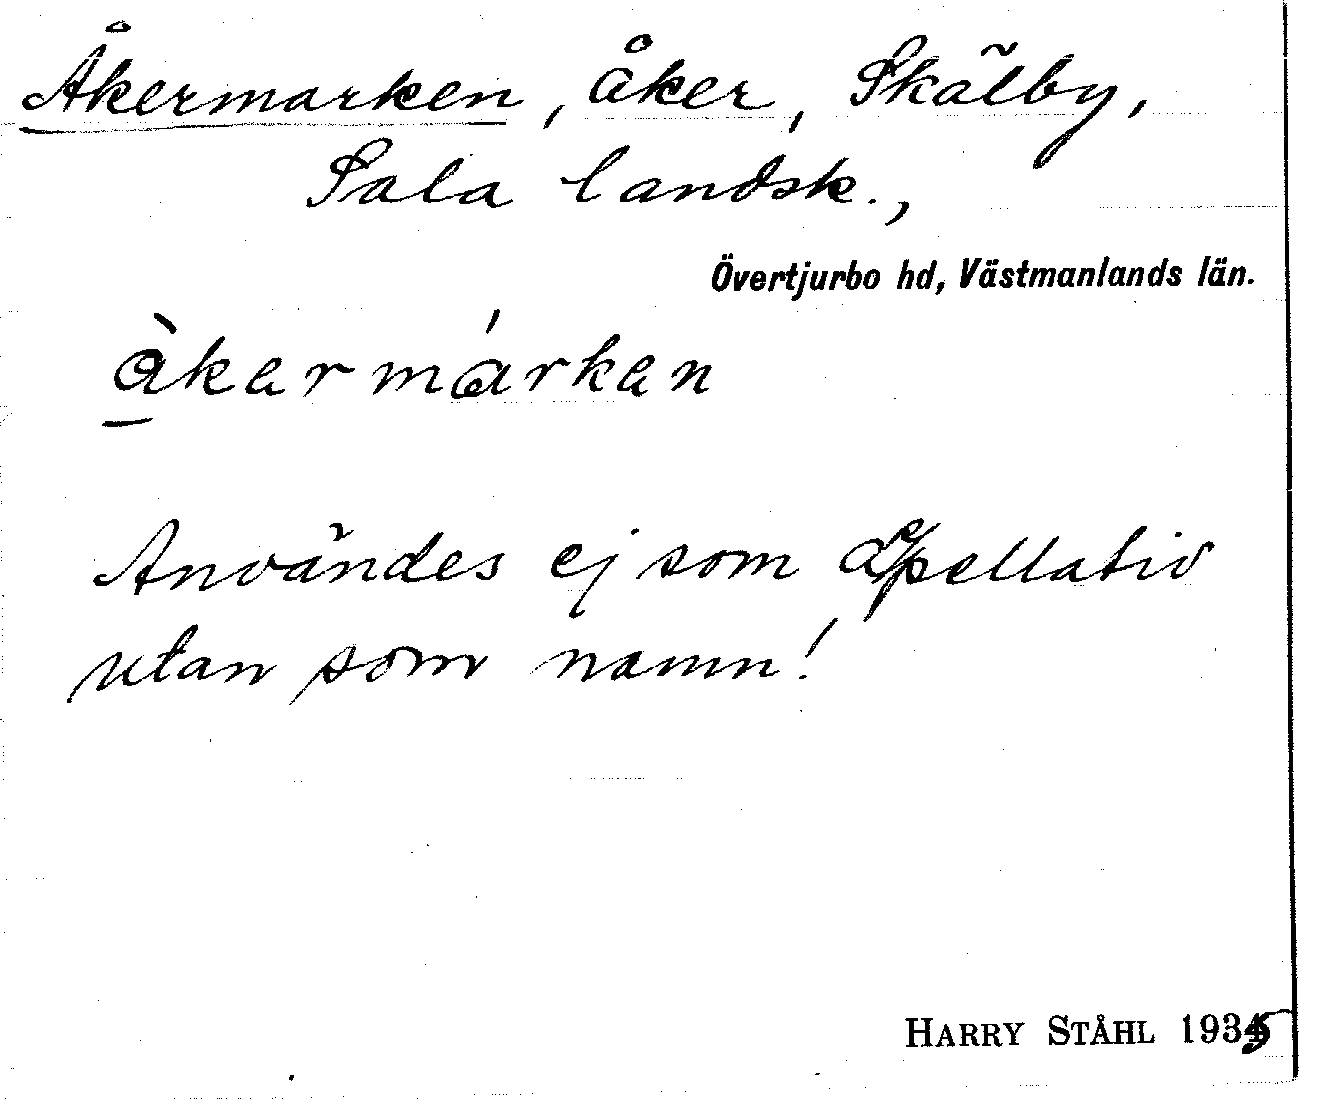 Åkermarken, åker, Skälby,
Sala landsk.,
Övertjurbo hd, Västmanlands län.
àkarmárkan
Användes ej som appellativ
utan som namn!
HARRY STÅHL 1935